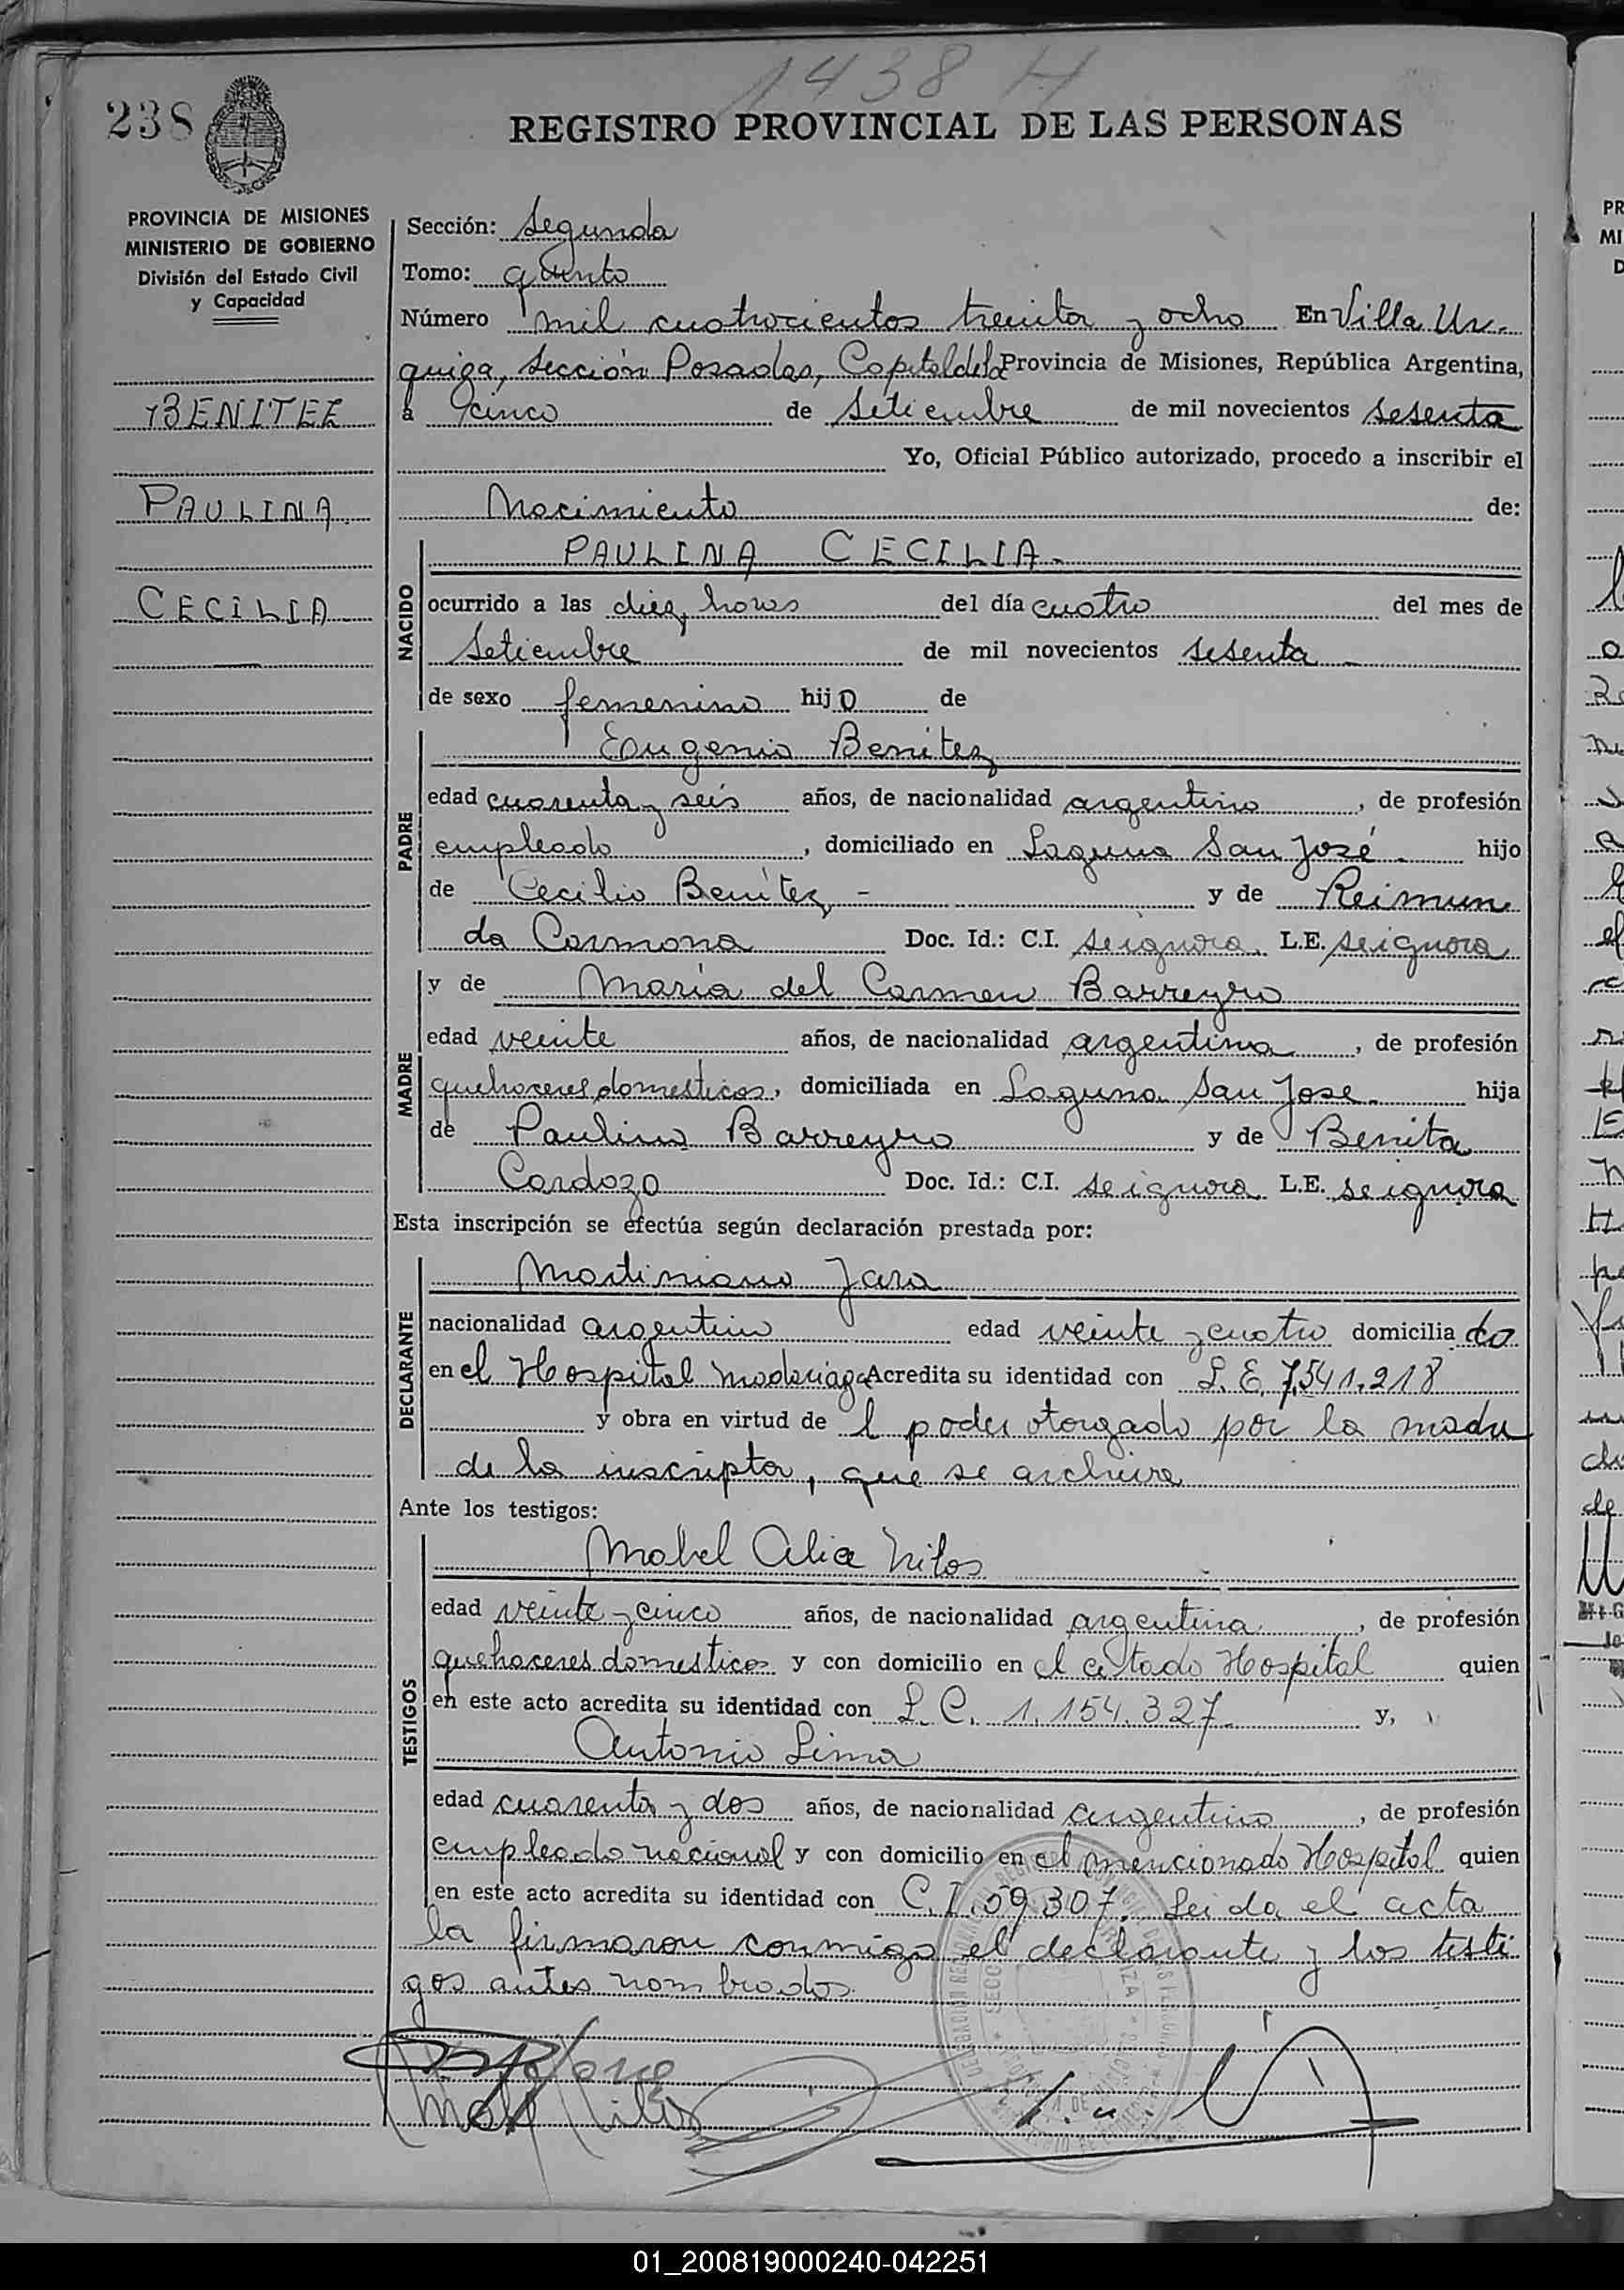 1438 H
238
REGISTRO PROVINCIAL DE LAS PERSONAS
PROVINCIA DE MISIONES
MINISTERIO DE GOBIERNO
División del Estado Civil
y Capacidad
BENITEZ
PAULINA
CECILIA
Sección: Segunda
Tomo: quinto
Número mil cuatrocientos treinta y ocho En Villa Ur-
quiza, sección Posadas, Capital de la Provincia de Misiones, República Argentina,
a cinco de Setiembre de mil novecientos sesenta
Yo, Oficial Público autorizado, procedo a inscribir el
Nacimiento de:
NACIDO
PAULINA CECILIA.
ocurrido a las diez horas del día cuatro del mes de
Setiembre de mil novecientos sesenta
de sexo femenino hijo de
PADRE
Eugenio Benitez
edad cuarenta y seis años, de nacionalidad argentino, de profesión
empleado, domiciliado en Laguna San José. hijo
de Cecilio Benítez - y de Reimun
da Carmona Doc. Id.: C.I. se ignora L.E. se ignora
MADRE
y de María del Carmen Barreyro
edad veinte años, de nacionalidad argentina, de profesión
quehaceres domesticos, domiciliada en Laguna San Jose. hija
de Paulino Barreyro y de Benita
Cardozo Doc. Id.: C.I. se ignora L.E. se ignora
Esta inscripción se efectúa según declaración prestada por:
DECLARANTE
Martiniano Jara
nacionalidad argentino edad veinte y cuatro domicilia do
en el Hospital Madariaga Acredita su identidad con L.E. 7.541.218
y obra en virtud de l poder otorgado por la madre
de la inscripta, que se archiva
Ante los testigos:
TESTIGOS
Mabel Alia Nilos
edad veinte y cinco años, de nacionalidad argentina, de profesión
quehaceres domesticos y con domicilio en el citado Hospital quien
en este acto acredita su identidad con L.C. 1.154.327 y,
Antonio Lima
edad cuarenta y dos años, de nacionalidad argentino, de profesión
empleado nacional y con domicilio en el mencionado Hospital quien
en este acto acredita su identidad con C.I. 59.307. Leida el acta
la firmaron conmigo el declarante y los testi
gos antes nombrados.
01_200819000240-042251